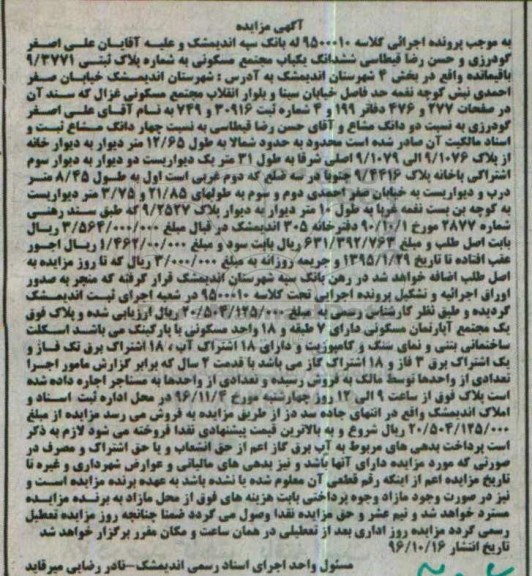 آگهی مزایده
به موجب پرونده اجرائی کلاسه 9500010 له بانک سپه اندیمشک و علیه آقایان علی اصغر
گودرزی و حسن رضا قیطاسی ششدانگ یکباب مجتمع مسکونی به شماره پلاک ثبتی 9/3771
باقیمانده واقع در بخش 4 شهرستان اندیمشک به آدرس : شهرستان اندیمشک خیابان صفر
احمدی نبش کوچه نغمه حد فاصل خیابان سینا و بلوار انقلاب مجتمع مسکونی غزال که سند آن
در صفحات 277 و 476 دفاتر 199 و 4 شماره ثبت 30916 و 749 به نام آقای علی اصغر
گودرزی به نسبت دو دانگ مشاع و آقای حسن رضا قیطاسی به نسبت چهار دانگ مشاع ثبت و
اسناد مالکیت آن صادر شده است محدود به حدود شمالا به طول 12/65 متر دیوار به دیوار خانه
از پلاک 9/1076 الی 9/1079 اصلی شرقا به طول 31 متر یک دیواریست دو دیوار به دیوار سوم
اشتراکی باخانه پلاک 9/4416 جنوبا در سه ضلع که دوم غربی است اول به طول 8/45 متر
درب و دیواریست به خیابان صفر احمدی دوم و سوم به طولهای 21/85 و 3/75 متر دیواریست
به کوچه بن بست نغمه غربا به طول 10 متر دیوار به دیوار پلاک 9/2527 که طبق سند رهنی
شماره 2877 مورخ 90/10/1 دفترخانه 305 اندیمشک در قبال مبلغ 3/564/000/000 ریال
بابت اصل طلب و مبلغ 631/392/763 ریال بابت سود و مبلغ 1/462/00/000 ریال اجور
عقب افتاده تا تاریخ 1395/1/29 و جریمه روزانه به مبلغ 3/000/000 ریال که تا روز مزایده به
اصل طلب اضافه خواهد شد در رهن بانک سپه شهرستان اندیمشک قرار گرفته که منجر به صدور
اوراق اجرائیه و تشکیل پرونده اجرایی تحت کلاسه 9500010 در شعبه اجرای ثبت اندیمشک
گردیده و طبق نظر کارشناس رسمی به مبلغ 20/504/125/000 ریال ارزیابی شده و پلاک فوق
یک مجتمع آپارتمان مسکونی دارای 7 طبقه و 18 واحد مسکونی با پارکینگ می باشد اسکلت
ساختمانی بتنی و نمای سنگ و کامپوزیت و دارای 18 اشتراک آب ، 18 اشتراک برق تک فاز و
یک اشتراک برق 3 فاز و 18 اشتراک گاز می باشد با قدمت 2 سال که برابر گزارش مامور اجرا
تعدادی از واحدها توسط مالک به فروش رسیده و تعدادی از واحدها به مستاجر اجاره داده شده
است پلاک فوق از ساعت 9 الی 12 روز چهارشنبه مورخ 96/11/4 در محل اداره ثبت اسناد و
املاک اندیمشک واقع در انتهای جاده سد دز از طریق مزایده به فروش می رسد مزایده از مبلغ
20/504/125/000 ریال شروع و به بالاترین قیمت پیشنهادی نقدا فروخته می شود لازم به ذکر
است پرداخت بدهی های مربوط به آب برق گاز اعم از حق انشعاب و یا حق اشتراک و مصرف در
صورتی که مورد مزایده دارای آنها باشد و نیز بدهی های مالیاتی و عوارض شهرداری و غیره تا
تاریخ مزایده اعم از اینکه رقم قطعی آن معلوم شده یا نشده باشد به عهده برنده مزایده است و
نیز در صورت وجود مازاد وجوه پرداختی بابت هزینه های فوق از محل مازاد به برنده مزایده
مسترد خواهد شد و نیم عشر و حق مزایده نقدا وصول می گردد ضمنا چنانچه روز مزایده تعطیل
رسمی گردد مزایده روز اداری بعد از تعطیلی در همان ساعت و مکان مقرر برگزار خواهد شد
تاریخ انتشار 96/10/16
مسئول واحد اجرای اسناد رسمی اندیمشک-نادر رضایی میرقاید